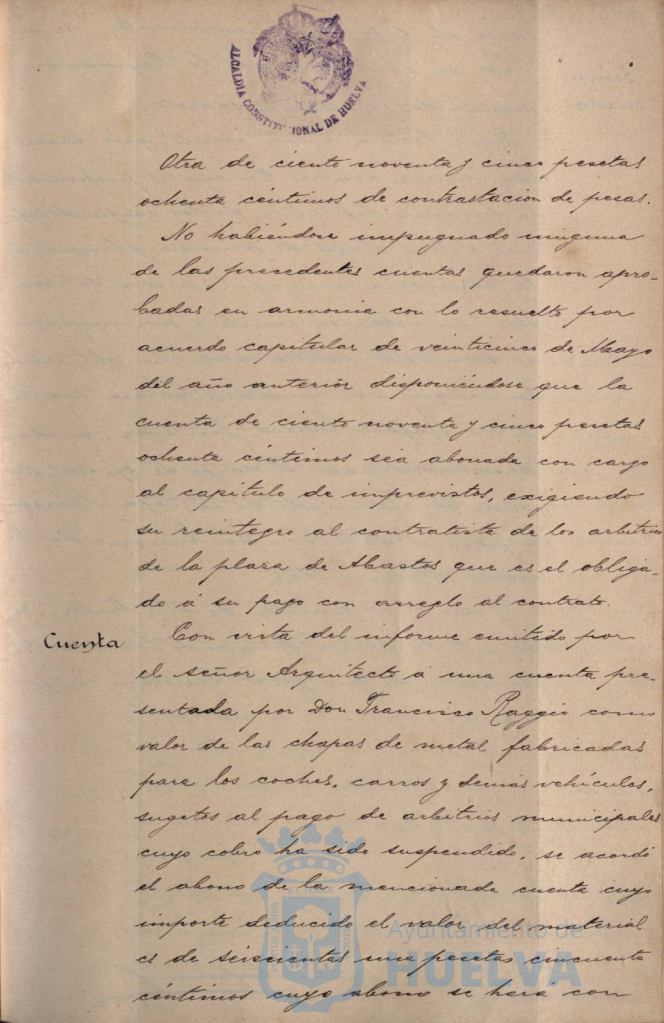 ALCALDIA CONSTITUCIONAL DE HUELVA
Otra de ciento noventa y cinco pesetas
ochenta céntimos de contrastacion de pesas.
No habiéndose impugnado ninguna
de las precedentes cuentas quedaron apro-
badas en armonia con lo resuelto por
acuerdo capitular de veinticinco de Mayo
del año anterior disponiéndose que la
cuenta de ciento noventa y cinco pesetas
ochenta céntimos sea abonada con cargo
al capitulo de imprevistos, exigiendo
su reintegro al contratista de los arbitrios
de la plaza de Abastos que es el obliga-
do á su pago con arreglo al contrato.
Cuenta
Con vista del informe emitido por
el señor Arquitecto á una cuenta pre-
sentada por Don Francisco Raggio como
valor de las chapas de metal fabricadas
para los coches, carros y demás vehículos,
sugetos al pago de arbitrios municipales
cuyo cobro ha sido suspendido, se acordó
el abono de la mencionada cuenta cuyo
importe deducido el valor del material
es de seiscientas una pesetas cincuenta
céntimos cuyo abono se hara con
Ayuntamiento de
HUELVA